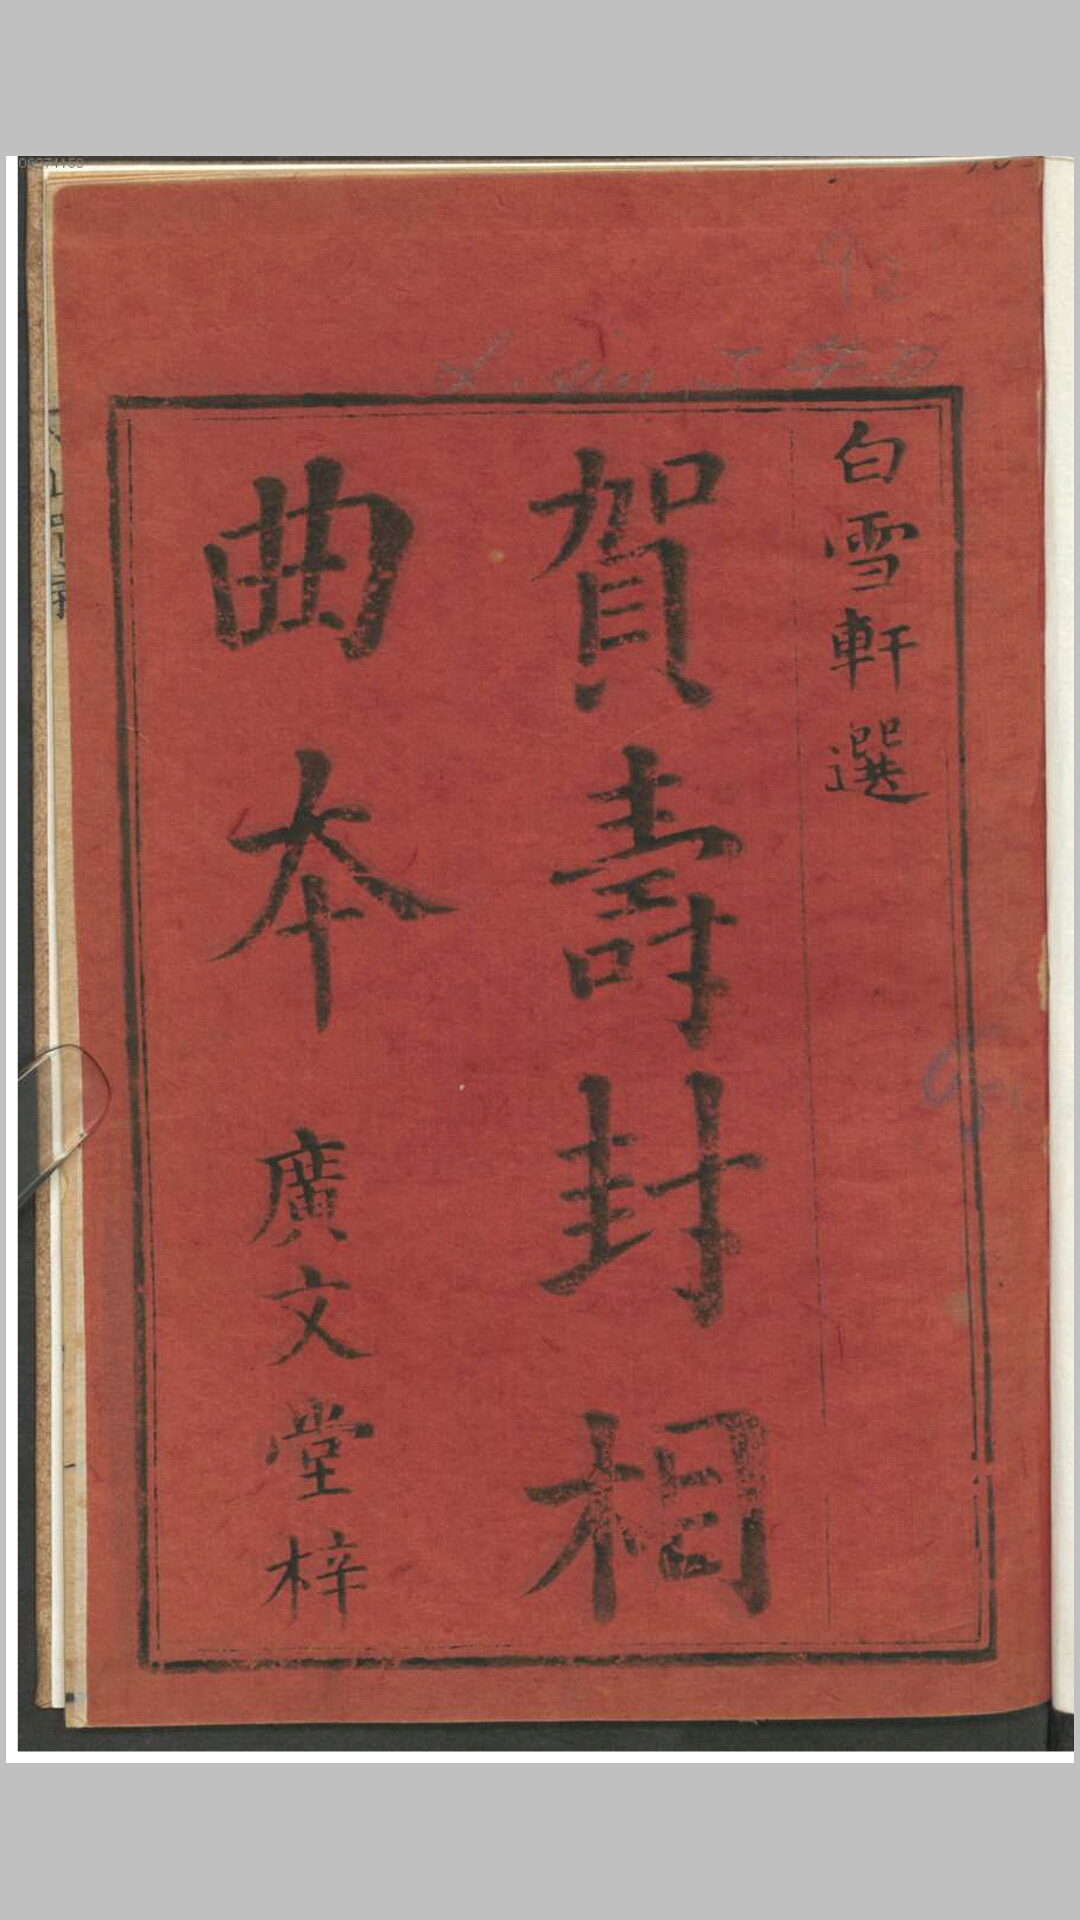 白雪軒選
賀壽封相
曲本
廣文堂梓